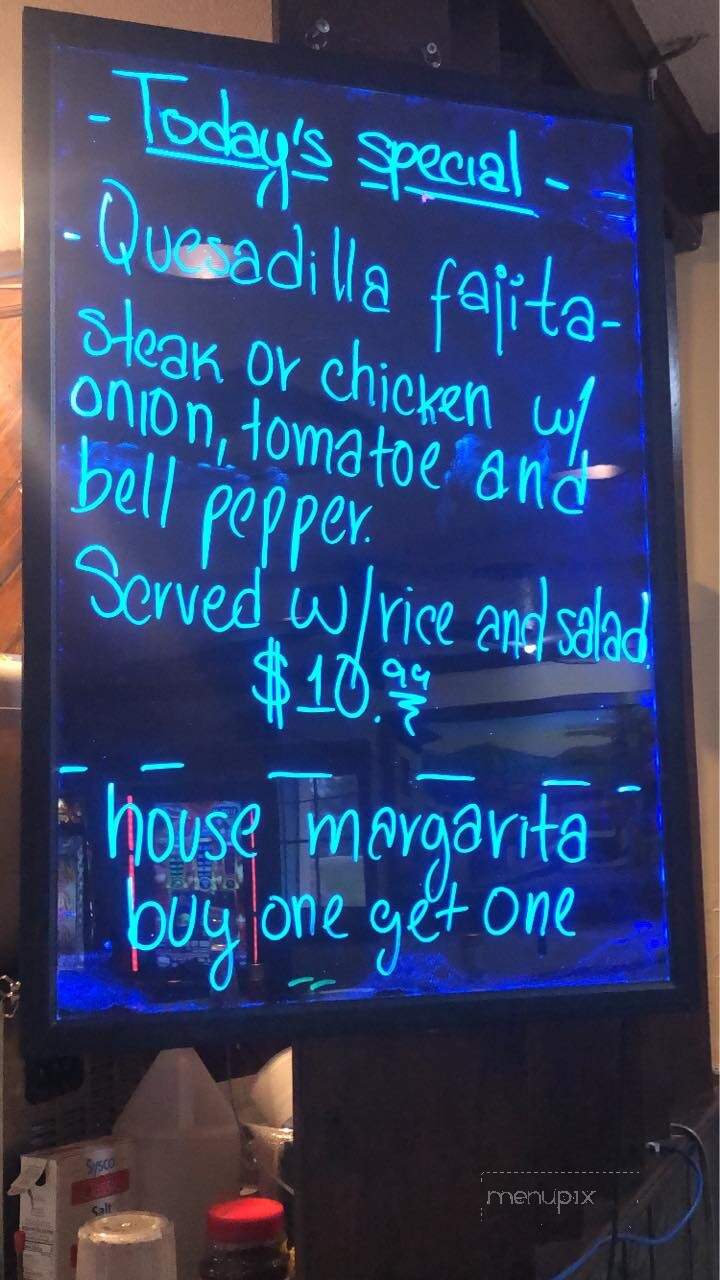 - Today's special -
- Quesadilla fajita-
steak or chicken w/
onion, tomatoe and
bell pepper.
Served w/rice and salad.
$10.99
house margarita
buy one get one
Sysco
Salt
menupix